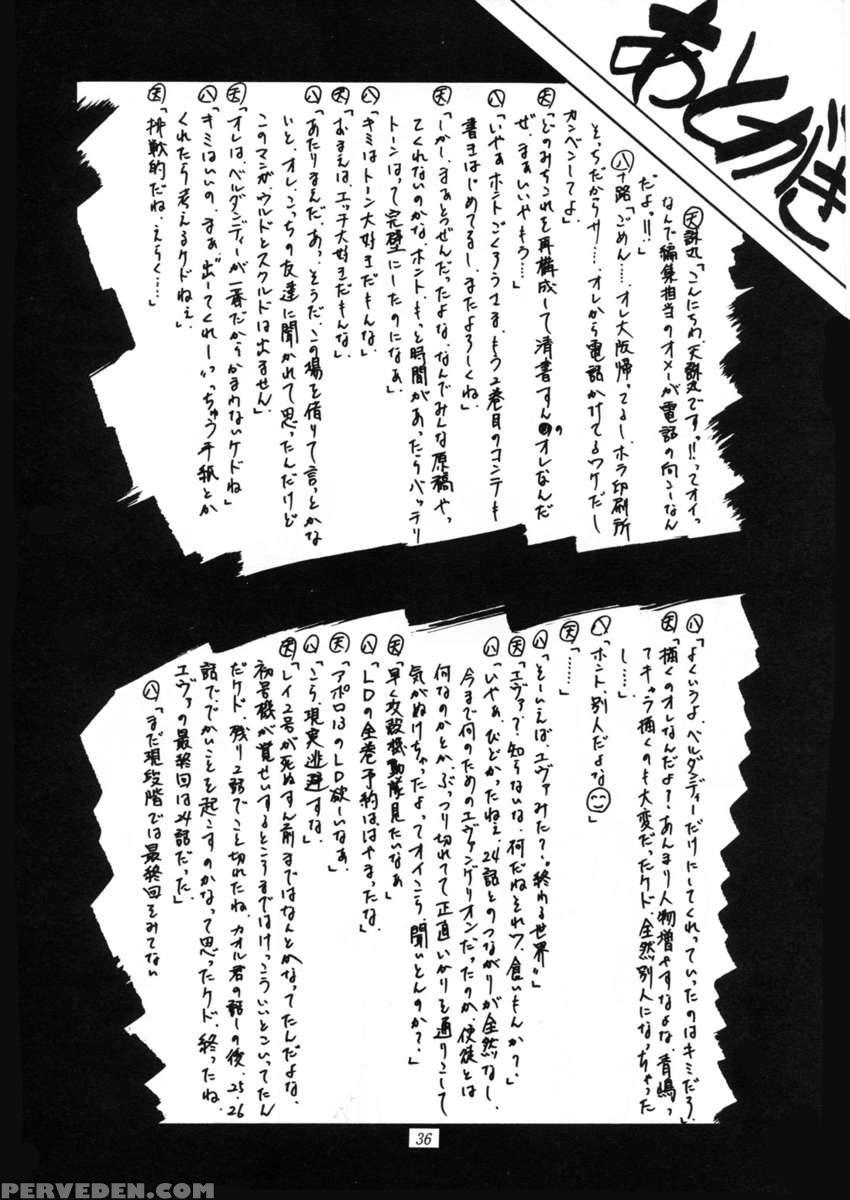 あとがき
天誅丸「こんにちわ、天誅丸です。!!ってオイっ
なんで編集担当のオメーが電話の向こーなん
だよっ!!」
八十路「ごめん……、オレ大阪帰ってるし、ホラ印刷所
そっちだからサ……、オレから電話かけてるワケだし
カンベンしてよ」
天「どのみちこれを再構成して清書すんのオレなんだ
ぜ、まぁいいやもう…」
八「いやぁホントごくろうさま、もう2巻目のコンテも
書きはじめてるし、またよろしくね」
天「しかし、まぁとうぜんだったよな、なんでみんな原稿やっ
てくれないのかな、ホント、もっと時間があったらバッチリ
トーンはって完璧にしたのになぁ」
八「キミはトーン大好きだもんな」
天「おまえは、エッチ大好きだもんな」
八「あたりまえだ、あっ、そうだ、この場を借りて言っとかな
いと、オレ、こっちの友達に聞かれて思ったんだけど
このマンガ、ウルドとスクルドは出ません」
天「オレは、ベルダンディーが一番だからかまわないケドね」
八「キミはいいの、まぁ"出ーてくれー"いっちゅう手紙とか
くれたら考えるケドねぇ」
天「挑戦的だね、えらく…」
八「よくいうよ、ベルダンディーだけにしてくれっていったのはキミだろ」
天「描くのオレなんだよ?、あんまり人物増やすなよな、青嶋っ
てキャラ描くのも大変だったケド、全然別人になっちゃった
し……」
八「ホント、別人だよな」
天「……」
八「そーいえば、エヴァみた?"終わる世界"」
天「エヴァ?、知らないな、何だねそれワ、食いもんか?」
八「いやぁ、ひどかったねぇ、24話とのつながりが全然なし、
今まで何のためのエヴァンゲリオンだったのか、使徒とは
何なのかとか、ぶっつり切れてて正直いかりを通りこして
気がぬけちゃったよってオイこら、聞いとんのか?」
天「早く攻殻機動隊見たいなぁ」
八「LDの全巻予約ははやまったな」
天「アポロ13のLD欲しいなぁ」
八「こら、現実逃避すな」
天「レイ2号が死ぬすん前まではなんとかなってたんだよな、
初号機が覚せいするところまではけっこういいとこいってたん
だケド、残り2話でこと切れたね、カオル君の話しの後、25、26
話ででかいことを起こすのかなって思ったケド、終ったね、
エヴァの最終回は24話だった」
八「まだ現段階では最終回をみてない
36
PERVEDEN.COM